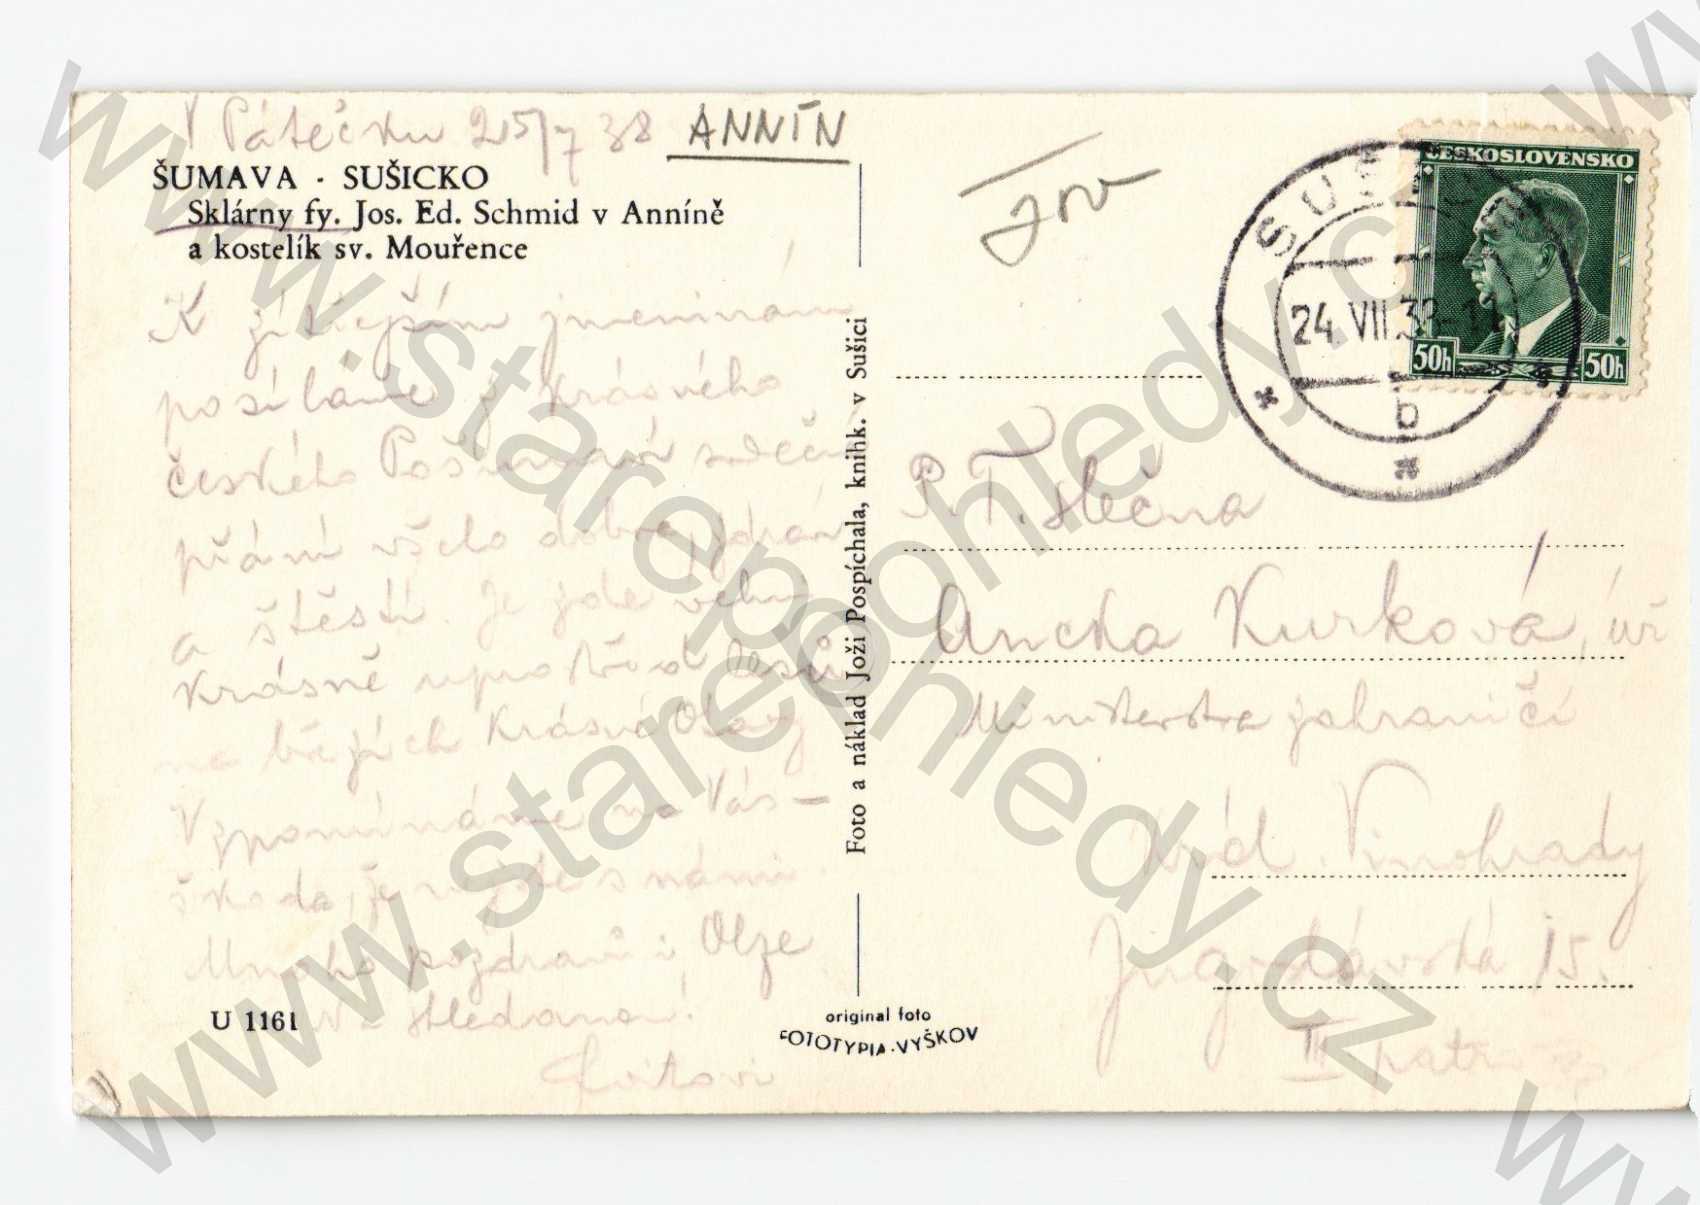 V Pátečku 25/7 38 ANNÍN
ŠUMAVA · SUŠICKO
Sklárny fy. Jos. Ed. Schmid v Anníně
a kostelík sv. Mouřence
K zítřejším jmeninám
posíláme z krásného
českého Pošumaví srdečné
přání všeho dobra, zdraví
a štěstí. Je zde velmi
krásně uprostřed lesů
na březích krásné Otavy
Vzpomínáme na Vás –
škoda, že nejste s námi.
Mnoho pozdravů i Olze
U 1161
Foto a náklad Joži Pospíchala, knihk. v Sušici
original foto
FOTOTYPIA-VYŠKOV
ČESKOSLOVENSKO
50h 50h
SUŠICE
24.VII.38
b
P. T. slečna
Ancka Kurková, úř
Ministerstva zahraničí
Král. Vinohrady
Jugoslávská 15.
II patro
www.starepohledy.cz
www.starepohledy.cz